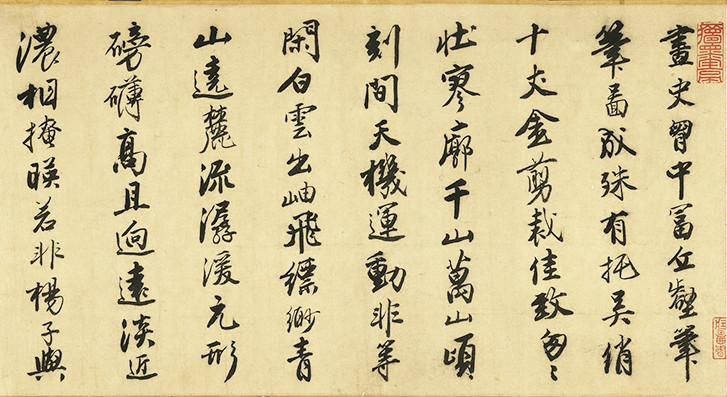 畫史胷中富丘壑筆
筆啚成殊有托吴綃
十丈金剪裁佳致匆〻
壯寥廓千山萬山頃
刻間天機運動非等
閑白雲出岫飛縹緲青
山遠麓流潺湲元形
磅礴高且逈遠淡近
濃相揜暎若非楊子與